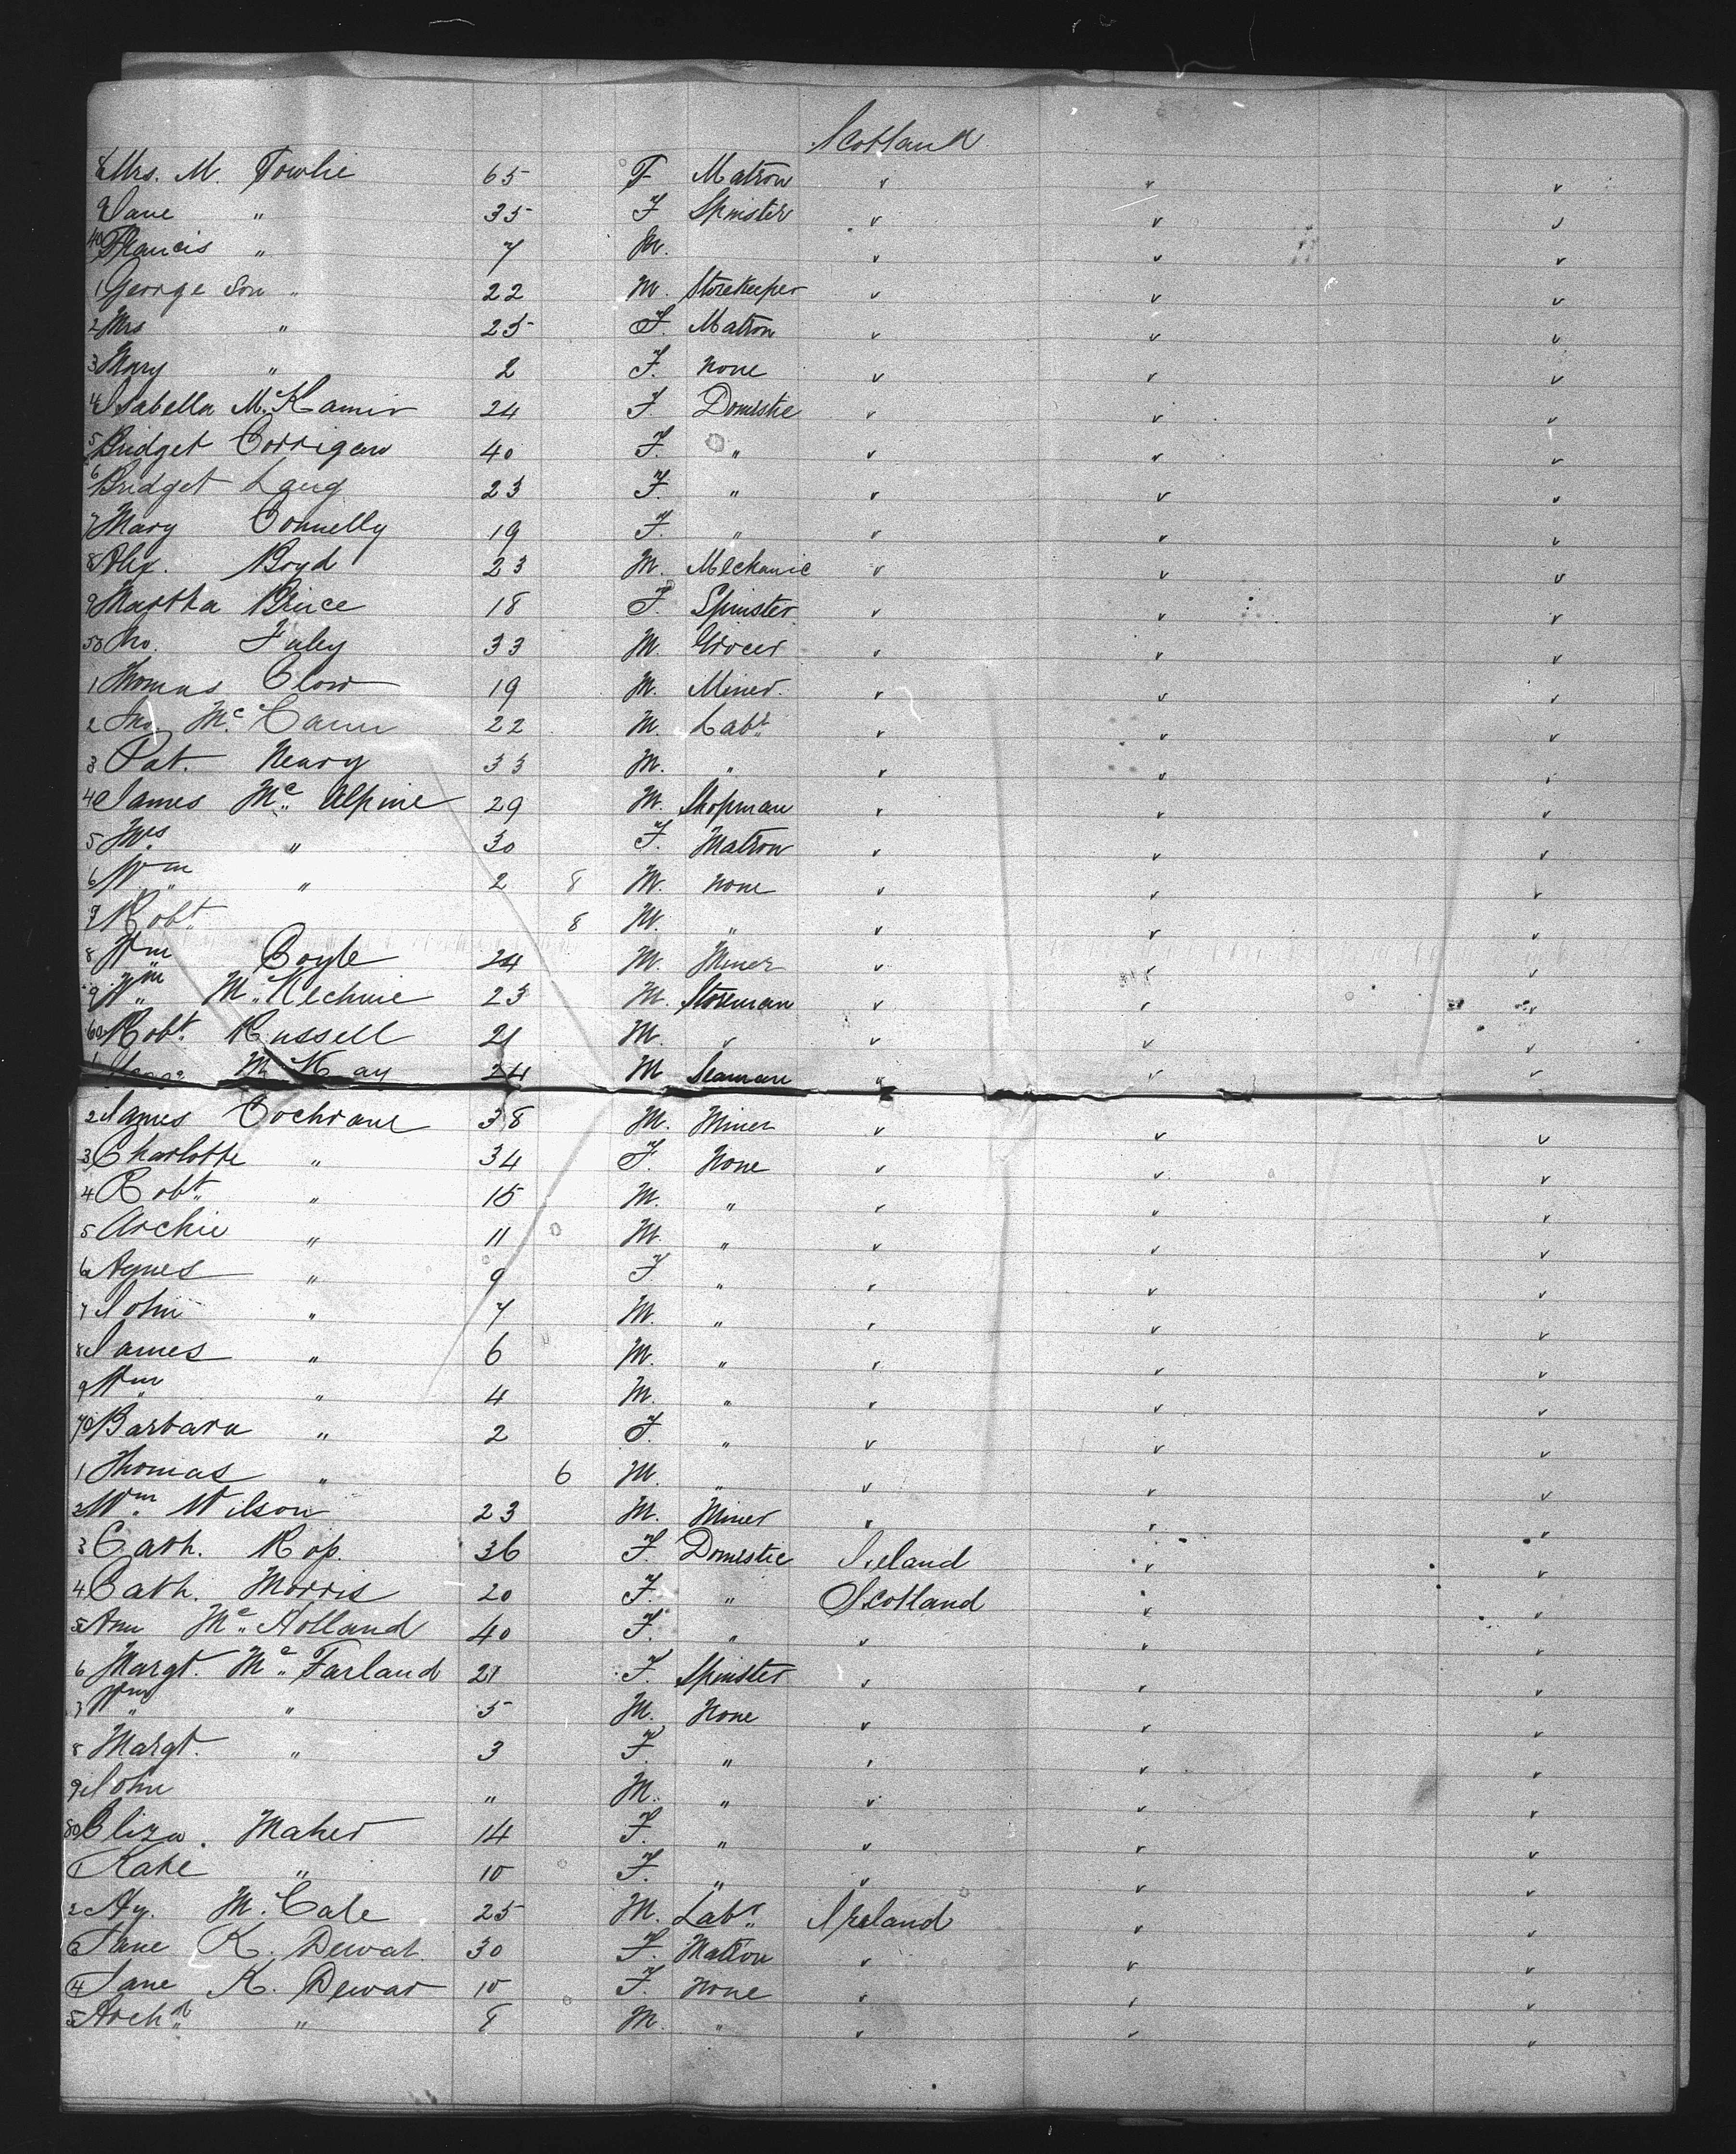 Scotland
8 Mrs. M. Fowlie 65 F Matron v v v
9 Jane " 35 F Spinster v v v
40 Francis " 7 M. v v v
1 George Son " 22 M. Storekeeper v v v
2 Mrs " 25 F. Matron v v v
3 Mary " 2 F. None v v v
4 Isabella M. 24 F. Domestic v v v
5 Bridget Corrigan 40 F. " v v v
6 Bridget Lang 23 F. " v v v
7 Mary Connelly 19 F. " v v v
8 Alex. Boyd 23 M. Mechanic v v v
9 Martha Bruce 18 F. Spinster v v v
50 Jno. Faley 33 M. Grocer v v v
1 Thomas Clow 19 M. Miner. v v v
2 Jno. Mc. Cann 22 M. Labr. v v v
3 Pat. Neary 33 M. " v v v
4 James Mc. Alpine 29 M. Shopman v v v
5 Mrs. " 30 F. Matron v v v
6 Wm " 2 8 M. None v v v
7 Robt. 8 M. " v v v
8 Wm Boyle 24 M. Miner v v v
9 Wm. Mc. Kechnie 23 M. Storeman v v v
60 Robt. Russell 21 M. v v v v
1 M. Kay 24 M Seaman " v v
2 James Cochrane 38 M. Miner v v v
3 Charlotte " 34 F. None v v v
4 Robt. " 15 M. " v v v
5 Archie " 11 M. " v v v
6 Agnes " 9 F " v v v
7 John " 7 M. " v v v
8 James " 6 M. " v v v
9 Wm. " 4 M. " v v v
70 Barbara " 2 F. " v v v
1 Thomas " 6 M. " v v v
2 Wm. Wilson 23 M. Miner v v v
3 Cath. 36 F. Domestic Ireland v v
4 Cath. Morris 20 F. " Scotland v v
5 Ann Mc. Holland 40 F. " v v v
6 Margt. Mc. Farland 27 F Spinster v v v
7 Wm. " 5 M. None v v v
8 Margt. " 3 F. " v v v
9 John " M. " v v v
80 Eliza. Maher 14 F. " v v v
1 Kate " 10 F. " v v v
2 Hy. Mc. Cabe 25 M. Labr. Ireland v v
3 Jane K. Dewar. 30 F. Matron v v v
4 Jane K. Dewar 10 F. None v v v
5 Archd. " 8 M. " v v v